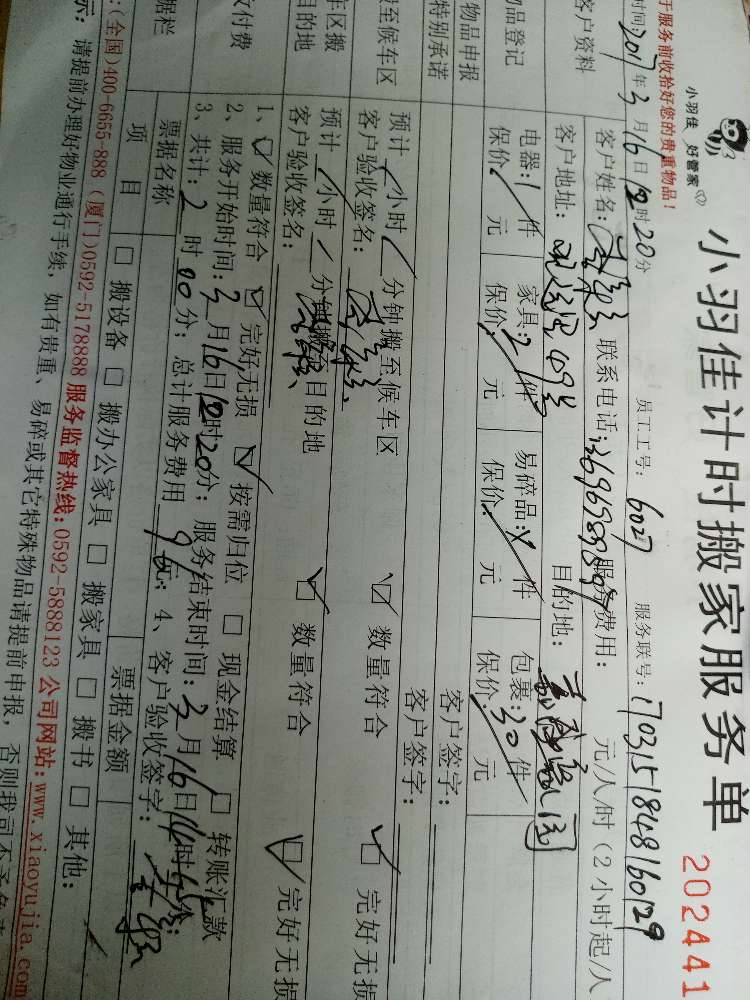 小羽佳 好管家
小羽佳计时搬家服务单 202441
于服务前收拾好您的贵重物品!
员工工号: 6027 服务联号: 170315184816029
时间: 2017年3月16日12时20分
客户资料 客户姓名: 联系电话: 服务费用: 元/人/时(2小时起/人
客户地址: 69号 目的地:
品登记 电器: 1件 家具: 2件 易碎品: 件 包裹: 30件
保价: 元 保价: 元 保价: 元 保价: 元
物品申报 客户签字:
特别承诺 客户签字:
至候车区 预计 小时 分钟搬至候车区 数量符合 完好无损
客户验收签名:
车区搬 预计 小时 分钟搬至目的地 数量符合 完好无损
目的地 客户验收签名:
付费 1、 数量符合 完好无损 按需归位 现金结算 转账汇款
2、服务开始时间: 3月16日12时20分; 服务结束时间: 3月16日14时 分;
3、共计: 2时00分; 总计服务费用 元; 4、客户验收签字:
据栏 票据名称 票据金额
项目 搬设备 搬办公家具 搬家具 搬书 其他:
:(全国)400-6655-888 (厦门)0592-5178888 服务监督热线:0592-5888123 公司网站:www.xiaoyujia.com
示: 请提前办理好物业通行手续, 如有贵重、易碎或其它特殊物品请提前申报, 否则我司不予